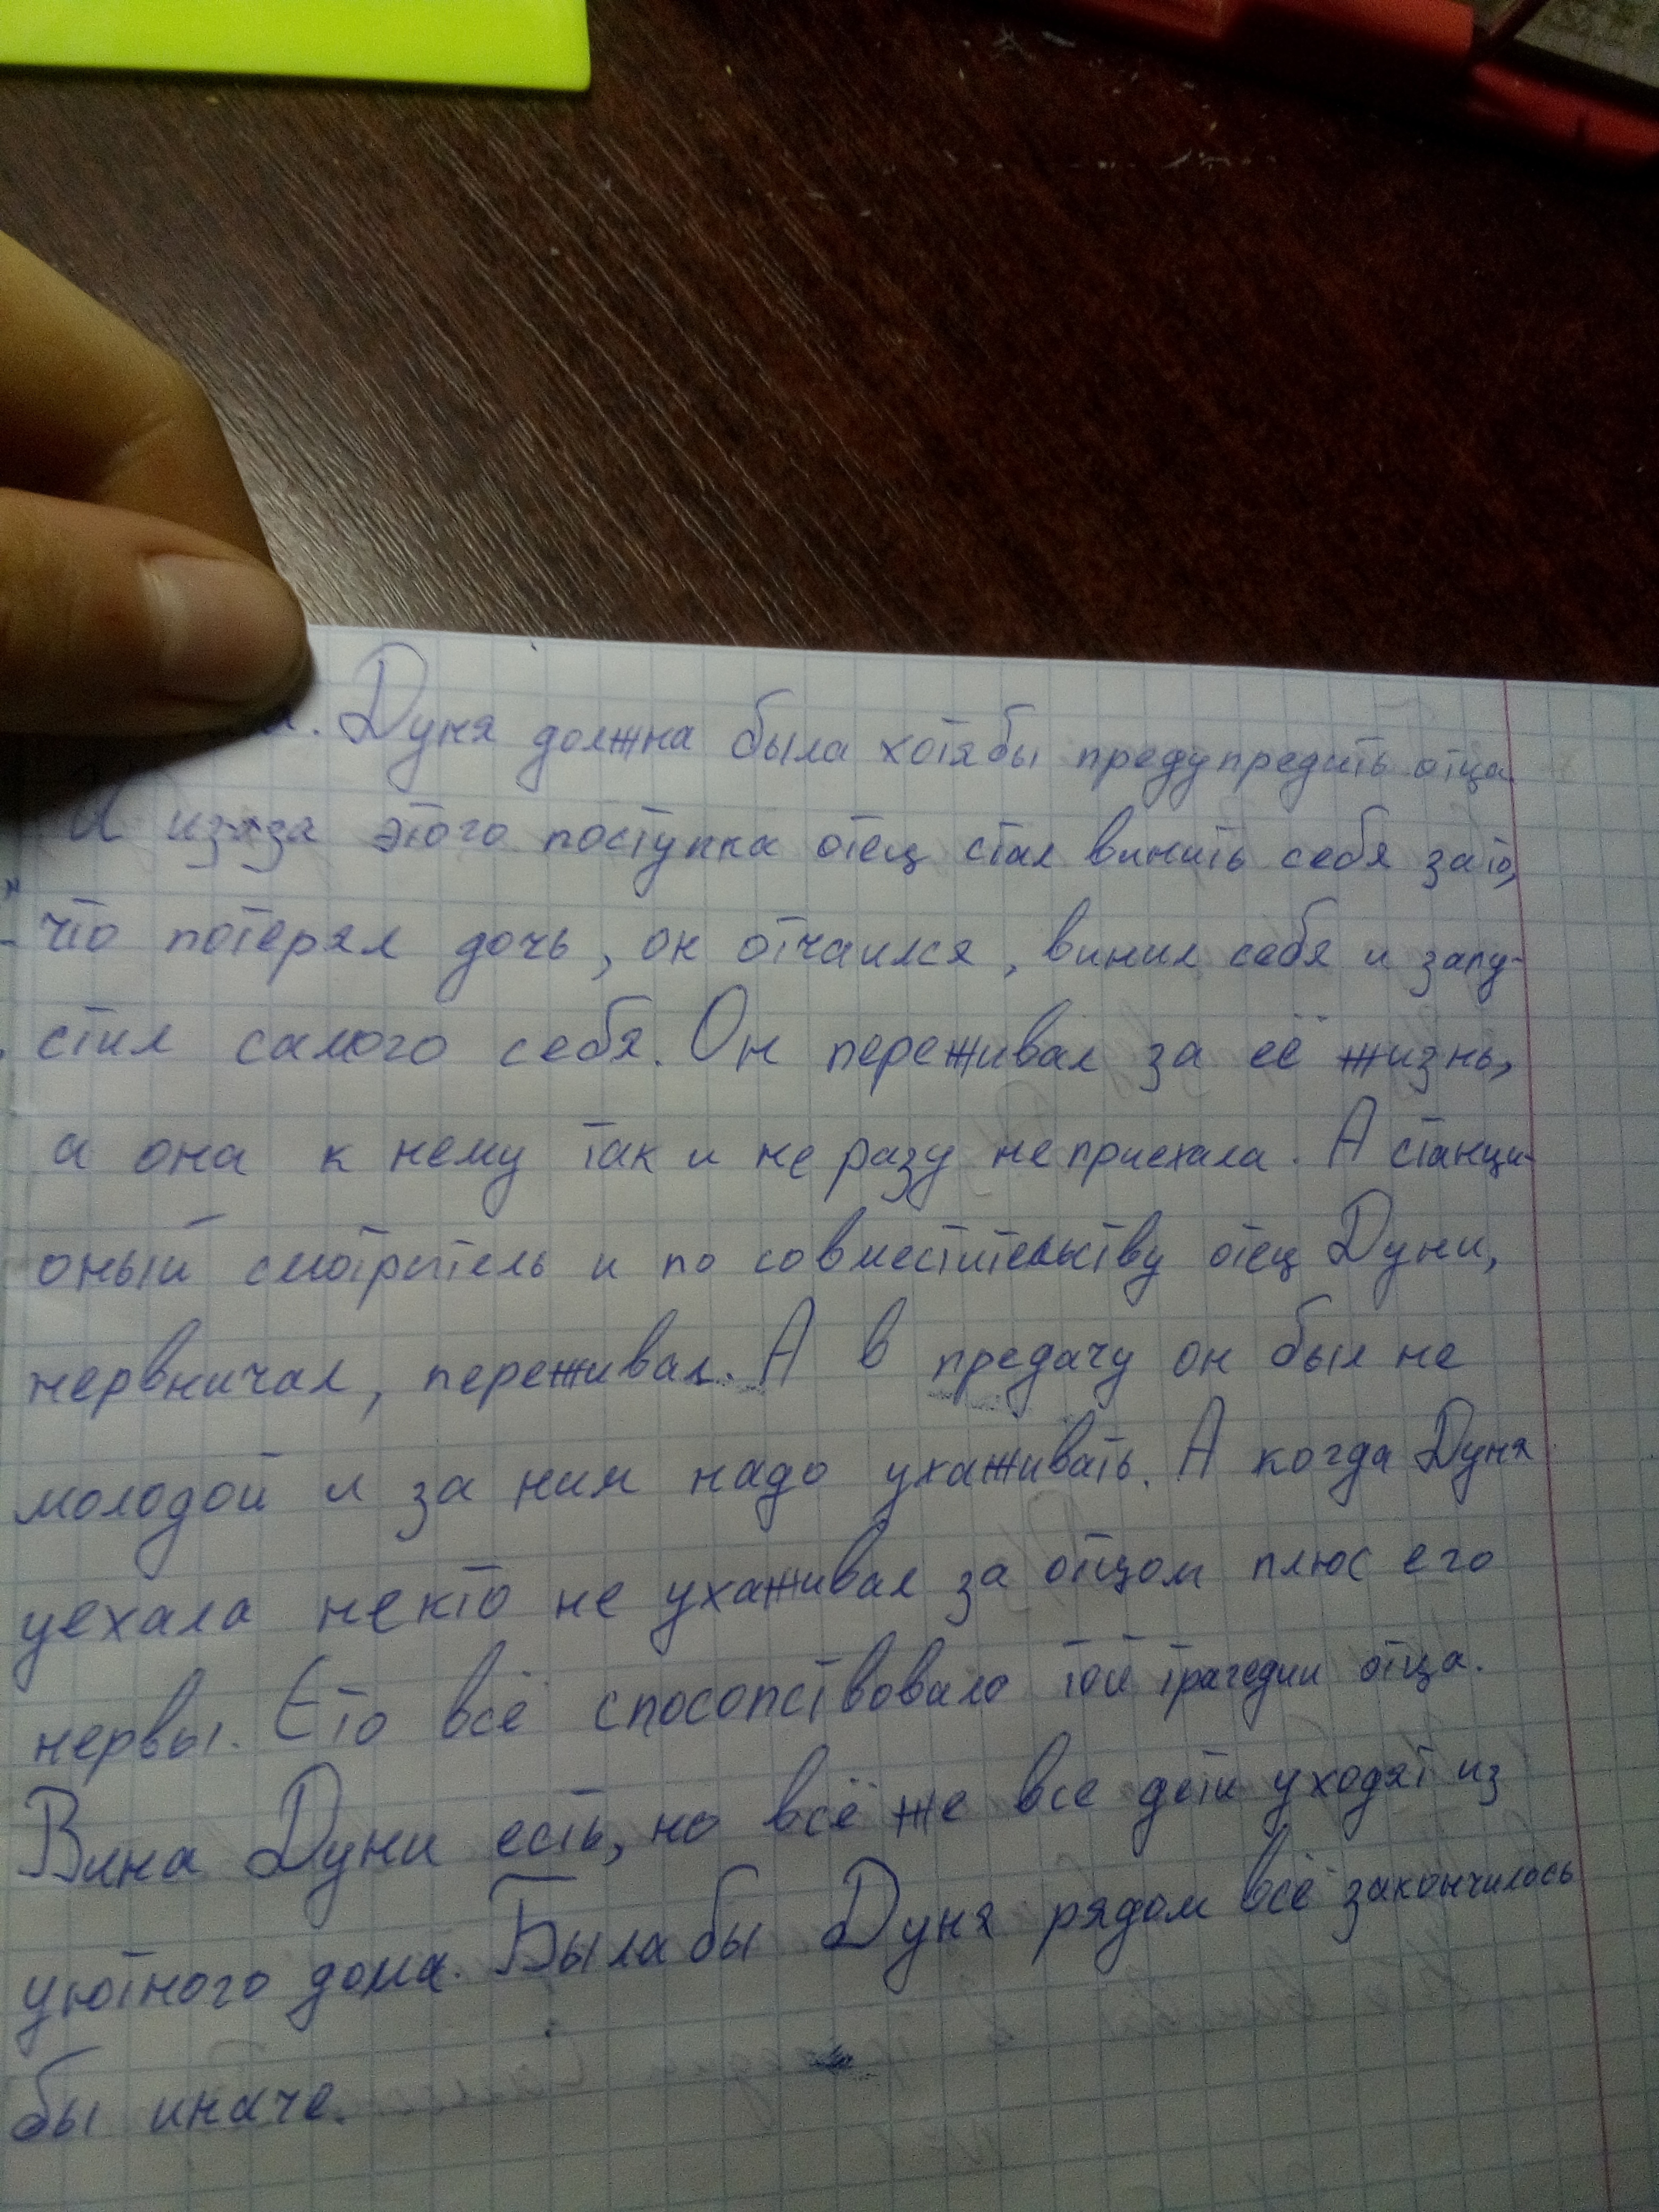 Дуня должна была хотябы предупредить отца.
И из-за этого поступка отец стал винить себя зато,
что потерял дочь, он отчаился, винил себя и запу-
стил самого себя. Он переживал за её жизнь,
а она к нему так и не разу не приехала. А станци-
оный смотритель и по совместительству отец Дуни,
нервничал, переживал. А в предачу он был не
молодой и за ним надо ухаживать. А когда Дуня
уехала некто не ухаживал за отцом плюс его
нервы. Ето всё спосопствовало той трагедии отца.
Вина Дуни есть, но всё же все дети уходят из
уютного дома. Была бы Дуня рядом всё закончилось
бы иначе.